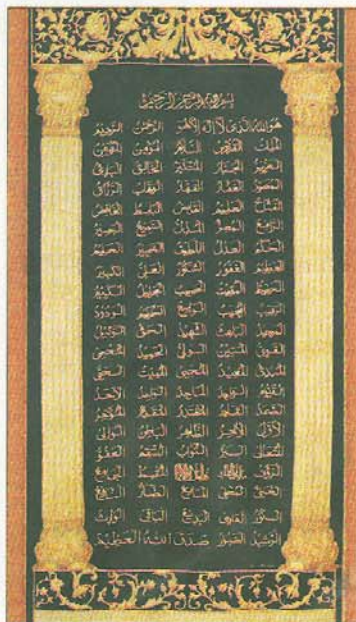 بسم الله الرحمن الرحيم
هو الله الذي لا إله إلا هو الرحمن الرحيم
الملك القدوس السلام المؤمن المهيمن
العزيز الجبار المتكبر الخالق البارئ
المصور الغفار القهار الوهاب الرزاق
الفتاح العليم القابض الباسط الخافض
الرافع المعز المذل السميع البصير
الحكم العدل اللطيف الخبير الحليم
العظيم الغفور الشكور العلي الكبير
الحفيظ المقيت الحسيب الجليل الكريم
الرقيب المجيب الواسع الحكيم الودود
المجيد الباعث الشهيد الحق الوكيل
القوي المتين الولي الحميد المحصي
المبدئ المعيد المحيي المميت الحي
القيوم الواجد الماجد الواحد الأحد
الصمد القادر المقتدر المقدم المؤخر
الأول الآخر الظاهر الباطن الوالي
المتعالي البر التواب المنتقم العفو
الرؤوف المقسط الجامع
الغني المغني المانع الضار النافع
النور الهادي البديع الباقي الوارث
الرشيد الصبور صدق الله العظيم